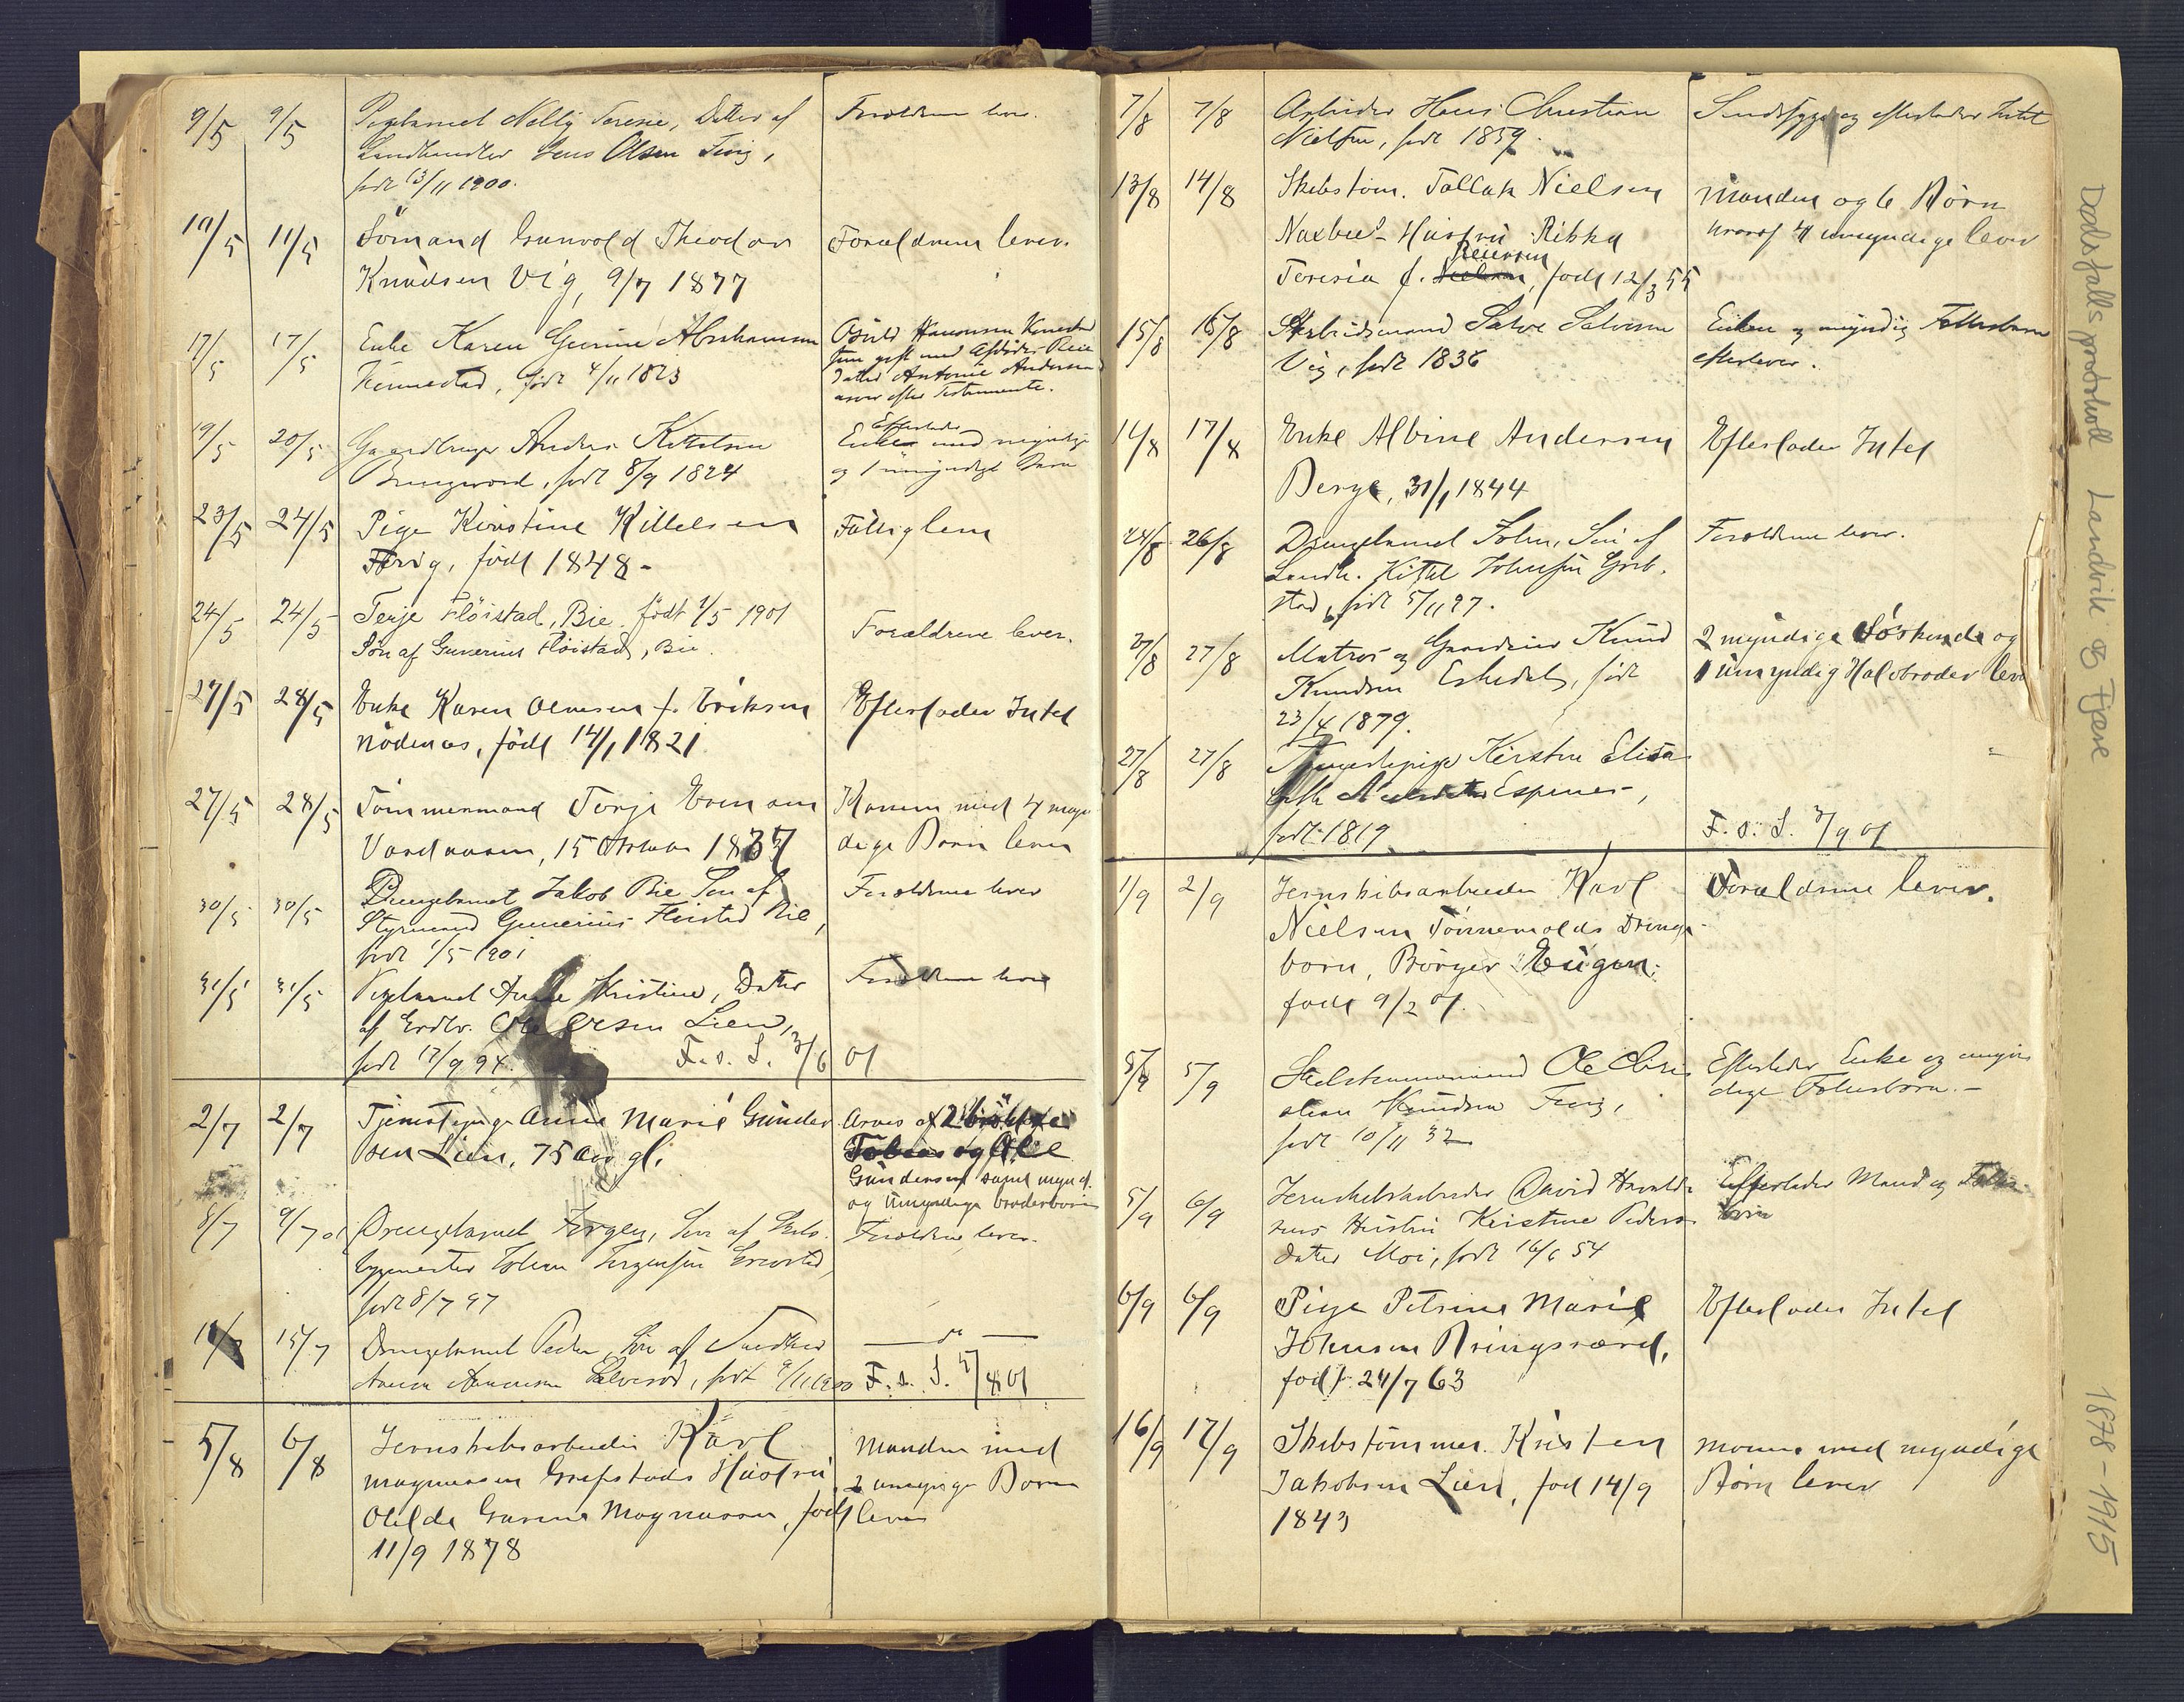 9/5 9/5 Pigebarnet Nelly Terese, Datter af Forældrene lever.
Landhandler Jens Olsen Fevig,
født 13/11 1900.
10/5 11/5 Sömand Gunvald Theodor Forældrene lever.
Knudsen Vig, 9/7 1877
17/5 17/5 Enke Karen Gurine Abrahamsen
født 4/11 1823
arver efter Testamente.
19/5 20/5 Gaardbruger Anders Kittelsen Efterlader
Enke med myndige
født 8/9 1824 og 1 umyndigt Barn
23/5 24/5 Pige Kirstine Kittelsen Fattiglem
Fevig, född 1848-
24/5 24/5 Terje Flöistad, Bie. född 1/5 1901 Forældrene lever.
Sön af Gunerius Flöistad, Bie.
27/5 28/5 Enke Karen Olevesen f. Eriksen Efterlader Intet
Nödenes, född 14/1 1821
27/5 28/5 Tömmermand Terje Evensen Konen med 4 myn
15 Oktober 1837 dige Børn lever
30/5 30/5 Drengebarnet Jakob Bie Søn af Forældrene lever
Styrmand Gunerius Fløistad Bie,
født 1/5 1901
31/5 31/5 Pigebarnet Anne Kristine, Datter Forældrene lever
af Ole Olsen Lien,
født 17/9 94. F. s. L. 3/6 01
2/7 2/7 Tjenestepige Anne Marie Gunder Arves af 2
sen Lien, 75 Aar gl. Tobias og Ole
Gundersen samt mynd.
og umyndige broderbörn
8/7 9/7 01 Drengebarnet Jørgen, Søn af Skibs- Forældrene lever.
byggmester Johan Jørgensen
født 8/7 97
15/7 Drengebarnet Peder, Søn af — do —
født 9/11 1900 F. s. L. 5/8 01
5/8 6/8 Jernskibsarbeider Karl Manden med
Magnussen Grefstads Hustru 2 umyndige Børn
Otilde Gurine Magnussen, född lever
11/9 1878
7/8 7/8 Arbeider Hans Christian Sindssyg og efterlader Intet
Nielsen, født 1859.
13/8 14/8 Skibstøm. Tallak Nielsen Manden og 6 Børn
Hustru Rikka hvoraf 4 umyndige lever
Reiersen
Teresia f. , född 12/3 55
15/8 16/8 Arbeidsmand Salve Salvesen Enken og myndig Fællesbarn
Vig, født 1836 efterlever.
14/8 17/8 Enke Albine Andersen Efterlader Intet
Berge, 31/1 1844
24/8 26/8 Drengebarnet John, Søn af Forældrene lever.
Landh. Kittel Johnsen Greb-
stad, født 5/11 97.
27/8 27/8 Matros og Gaardeier Knud 2 myndige Söskende og
Knudsen Eskedal, født 1 umyndig Halvbroder lever
23/4 1879.
27/8 27/8 Tjenestepige Kirstine Elisa-
beth Espenes,
født 1819 F. s. L. 3/9 01
1/9 2/9 Jernskibsarbeider Karl Forældrene lever.
Nielsen Tönnevolds Drenge-
barn, Börger Eugen.
född 9/2 01.
5/9 5/9 Skibstømmermand Ole Chri Efterlader Enke og myn
stian Knudsen Fevig, dige Fællesbørn.-
født 10/11 32
5/9 6/9 Jernskibsarbeider David Harald- Efterlader Mand og Fælles
sens Hustru Kirstine Peders- børn
datter Moi, født 16/6 54
6/9 6/9 Pige Petrine Marie Efterlader Intet
Johnsen Bringsværd,
född 24/7 63
16/9 17/9 Skibstömmer. Kristen Konen med myndige
Jakobsen Lien, fød 14/9 Børn lever
1843
Dødsfalls protokoll Landvik og Fjære 1878-1915